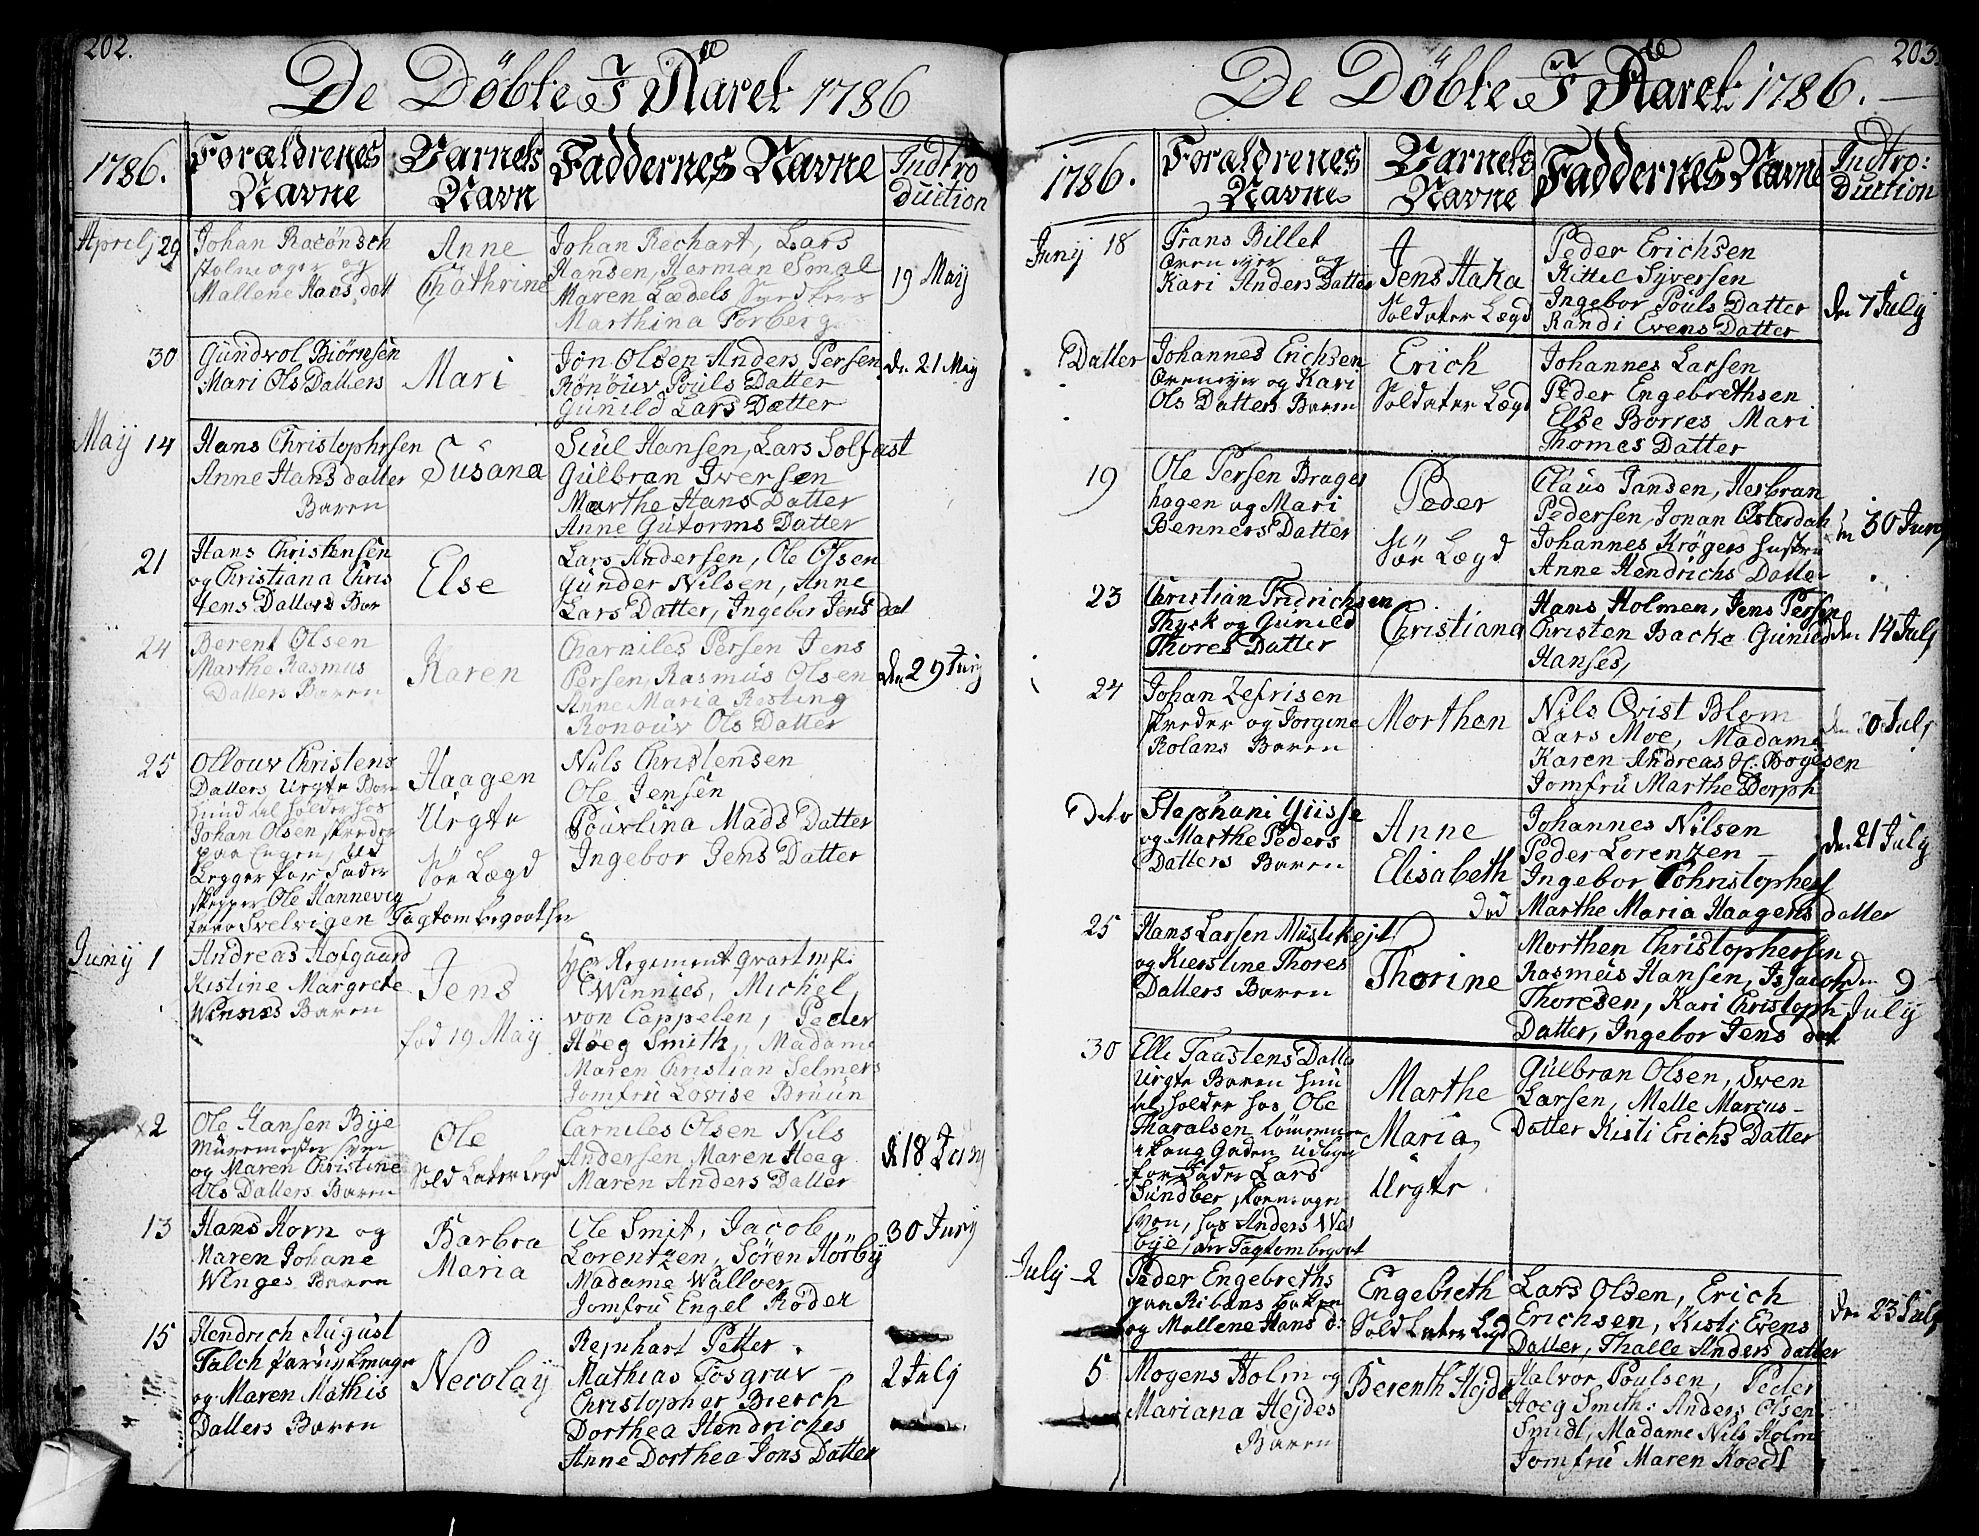 202.
De Döbte I Aaret 1786
1786.
Forældrenes
Navne
Barnets
Navn
Faddernes Navne
Indtro
Duction
April 29
Johan
og
Mallene Hans dat
Anne
Chathrine
Johan Rechart, Lars
Hansen, Herman Smal
Maren
Marthina Forberg
19 Maÿ
30
Gundvol Biörnsen
Mari Ols Datters
Mari
Jon Olsen Anders Persen
Rönouv Pouls Datter
Gunild Lars Datter
den 21 Maÿ
Maÿ 14
Hans Christophrsen
Anne Hans datter
Baren
Susana
Siul Hansen, Lars Solfast
Gulbran Iversen
Marthe Hans Datter
Anne Gutorms Datter
21
Hans Christensen
og Christiana Chris
tens Datters Bar
Else
Lars Andersen, Ole Olsen
Gunder Nilsen, Anne
Lars Datter, Ingebor Jens dat
24
Berent Olsen
Marthe Rasmus
Datters Baren
Karen
Charniles Persen Jens
Persen, Rasmus Olsen
Anne Maria Rosting
Ronouv Ols Datter
den 29 Juny
25
Ollouv Christens
Datters Urgte Bar
hund tel holder hos
Johan Olsen
paa Engen, Ud
Legger for Fader
Skipper Ole Hannevig
Svelvigen Tagtom begaatsen
Haagen
Urgte
Sör Lægd
Nils Christensen
Ole Jensen
Pourlina Mads Datter
Ingebor Jens Datter
Juny 1
Andreas Hofgaard
Kistine Margrete
Winnes Baren
Jens
fød 19 Maÿ
Hr Regiment qvartmst:
Winnies, Michel
von Cappelen, Peder
Höeg Smith, Madame
Maren Christian Selmers
Jomfru Lovise Bruun
2
Ole Hansen Bye
Muremester
og Maren Christine
Ols Datters Baren
Ole
Soldater Legd
Carniles Olsen Nils
Andersen Maren Hoag
Maren Anders Datter
d 18 Juny
13
Hans Horn og
Maren Johane
Winges Baren
Barbra
Maria
Ole Smit, Jacob
Lorentzen, Sören Hörbÿ
Madame Wallver
Jomfru Engel Röder
30 Juny
15
Hendrich August
Falch
og Maren Mathis
Datters Baren
Necolaÿ
Reinhart Petter
Mathias Fosgruv
Christopher Bierch
Dorthea Hendriches
Anne Dorthea Jons Datter
2 July
203
De Döbte I Aaret 1786.
1786.
Forældrenes
Navne
Barnets
Navne
Faddernes Navne
Indtro:
Duction
Juny 18
Frans Billet
og
Kari Anders Datter
Jens Haka
Soldater Lægd
Peder Erichsen
Kittel Syversen
Ingebor Pouls Datter
Randi Evens Datter
den 7 July
Datter
Johannes Erichsen
og Kari
Ols Datters Baren
Erich
Soldater Lægd
Johannes Larsen
Peder Engebrethsen
Else Borres Mari
Thomes Datter
19
Ole Persen Brages
hagen og Mari
Benners Datter
Peder
Sör Lægd
Claus Jansen, Aesbran
Pedersen, Jonan Österdah
Johannes Krögers hustru
Anne Hendrichs Datter
30 Juny
23
Christian Fridrichsen
Thysk og Gunild
Thores Datter
Christiana
Hans Holmen, Jens Persen
Christen Backe Gunild
Hanses,
den 14 July
24
Johan Zefrisen
Skreder og Jorgine
Rolans Baren
Morthen
Nils Qvist Blom
Lars Moe, Madame
Karen Andreas H: Bogesen
Jomfru Marthe Dorph
July
Dito
Stephani Giisse
og Marthe Peders
Datters Baren
Anne
Elisabeth
Död
Johannes Nilsen
Peder Lorenzen
Ingebor Christophers
Marthe Maria Haagens datter
den 21 July
25
Hans Larsen
og Kierstine Thores
Datters Baren
Thorine
Morthen Christophersen
Rasmus Hansen,
Thoresen, Kari Christoph
Datter, Ingebor Jens dat
den 9
July
30
Elli Taastens Datter
Urgte Baren hun
tel holder hos Ole
Tharalsen
Gaden
for Fader Lars
Sundber
hos Anders Wes
bye, Tagtom begaat
Marthe
Maria
Urgte
Gulbran Olsen, Swen
Larsen, Melle Marcus-
Datter Kisti Erichs Datter
July 2
Peder Engebreths
paa
og Mallene Hans d:
Engebreth
Soldater Legd
Lars Olsen, Erich
Erichsen, Kisti Evens
Datter, Thalle Anders datter
den 23 July
5
Mogens Holm og
Mariana Hejdes
Baren
Berenth Hejde
Halvor Poulsen, Peder
Hoeg Smith, Anders Olsen
Smidt, Madame Nils Holm
Jomfru Maren Koedt